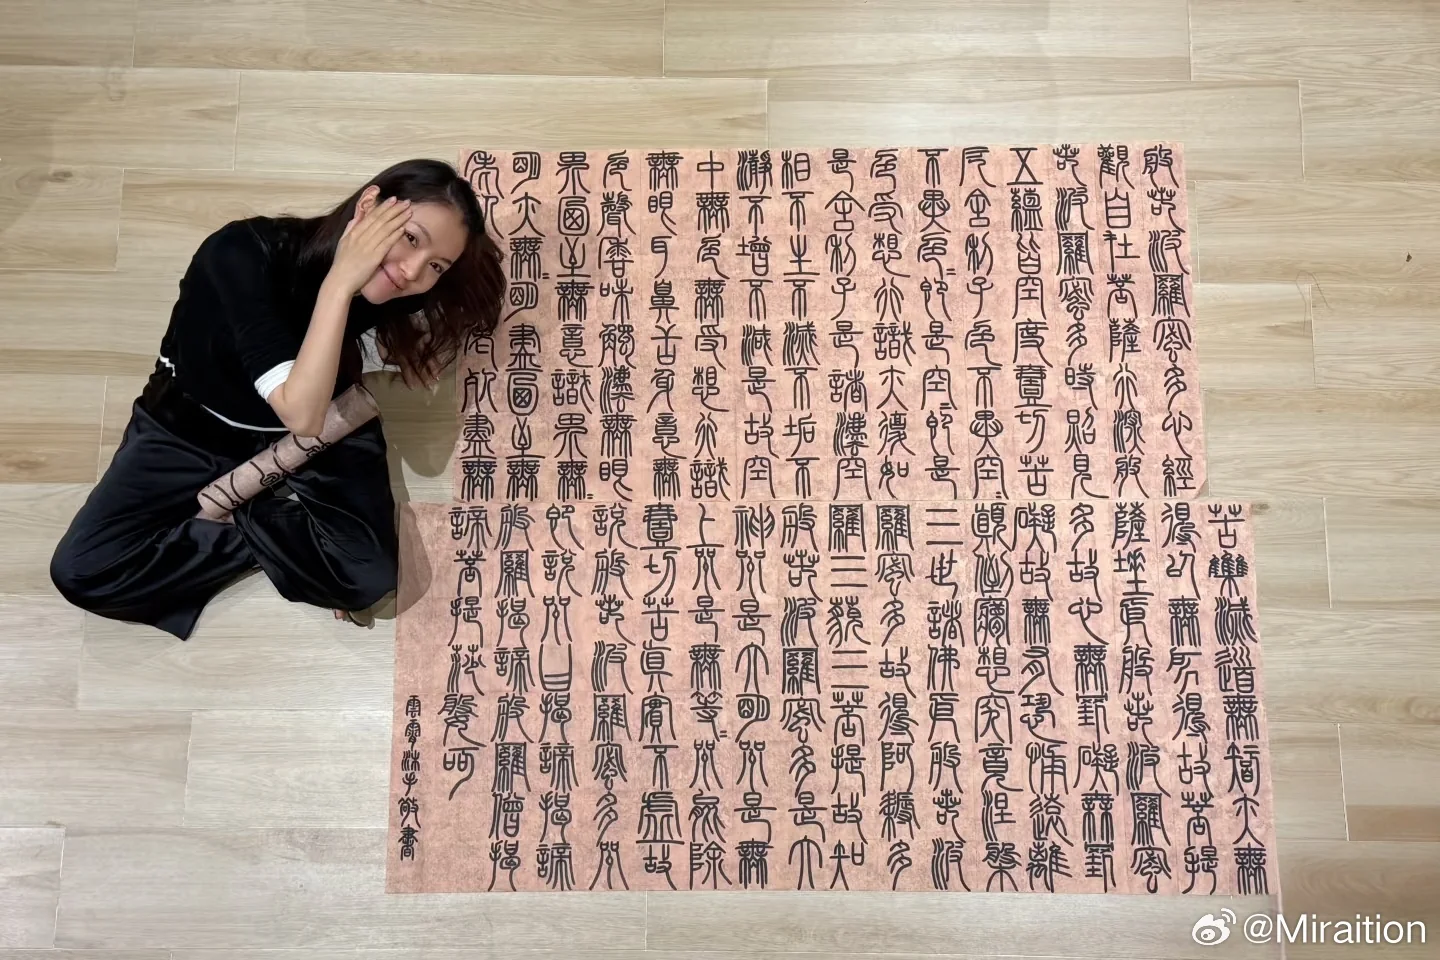 般若波羅蜜多心經
觀自在菩薩行深般
若波羅蜜多時照見
五蘊皆空度壹切苦
厄舍利子色不異空
不異色=即是空=即是
色受想行識亦復如
是舍利子是諸法空
相不生不滅不垢不
淨不增不減是故空
中無色無受想行識
無眼耳鼻舌身意無
色聲香味觸法無眼
界乃至無意識界無=
明亦無=明盡乃至無
老死老死盡無
苦集滅道無智亦無
得以無所得故菩提
薩埵依般若波羅蜜
多故心無罣礙無罣
礙故無有恐怖遠離
顛倒夢想究竟涅槃
三世諸佛依般若波
羅蜜多故得阿耨多
羅三藐三菩提故知
般若波羅蜜多是大
神咒是大明咒是無
上咒是無等=咒能除
壹切苦真實不虛故
說般若波羅蜜多咒
即說咒曰揭諦揭諦
般羅揭諦般羅僧揭
諦菩提莎婆訶
雲沐手敬書
@Miraition